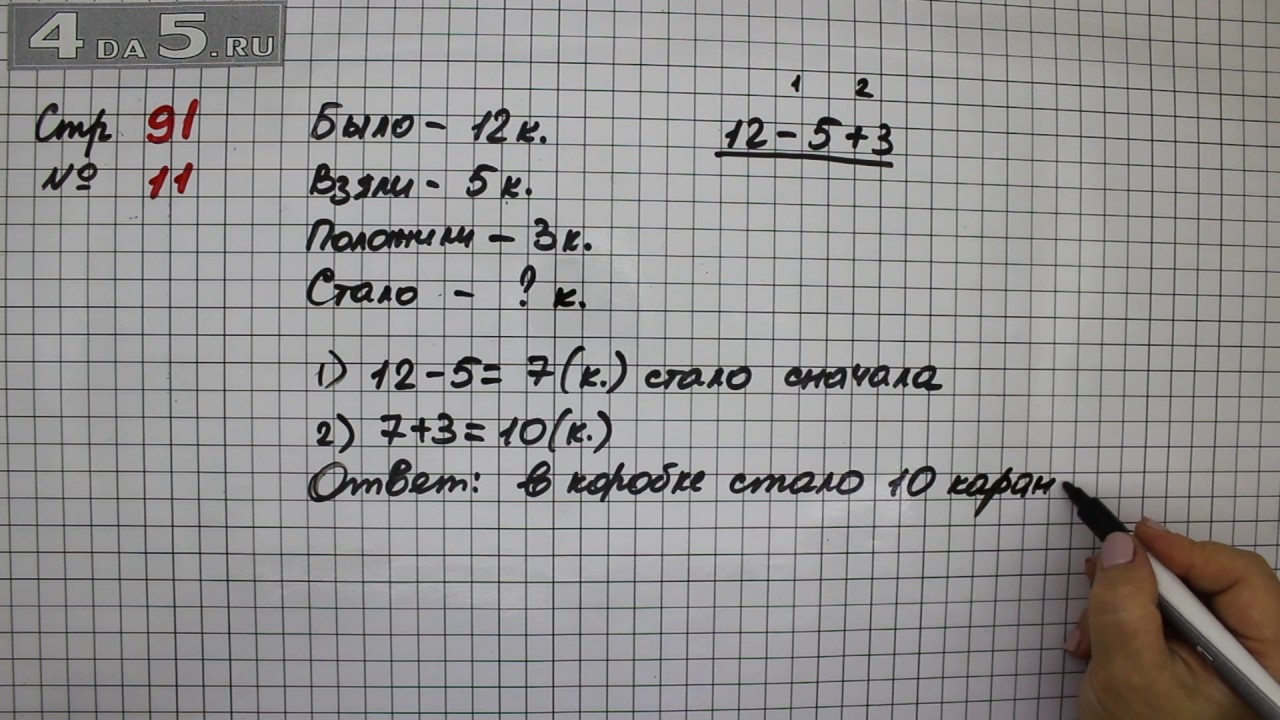 4DA5.RU
Стр 91
№ 11
Было - 12 к.
Взяли - 5 к.
Положили - 3 к.
Стало - ? к.
1 2
12 - 5 + 3
1) 12 - 5 = 7 (к.) стало сначала
2) 7 + 3 = 10 (к.)
Ответ: в коробке стало 10 каран